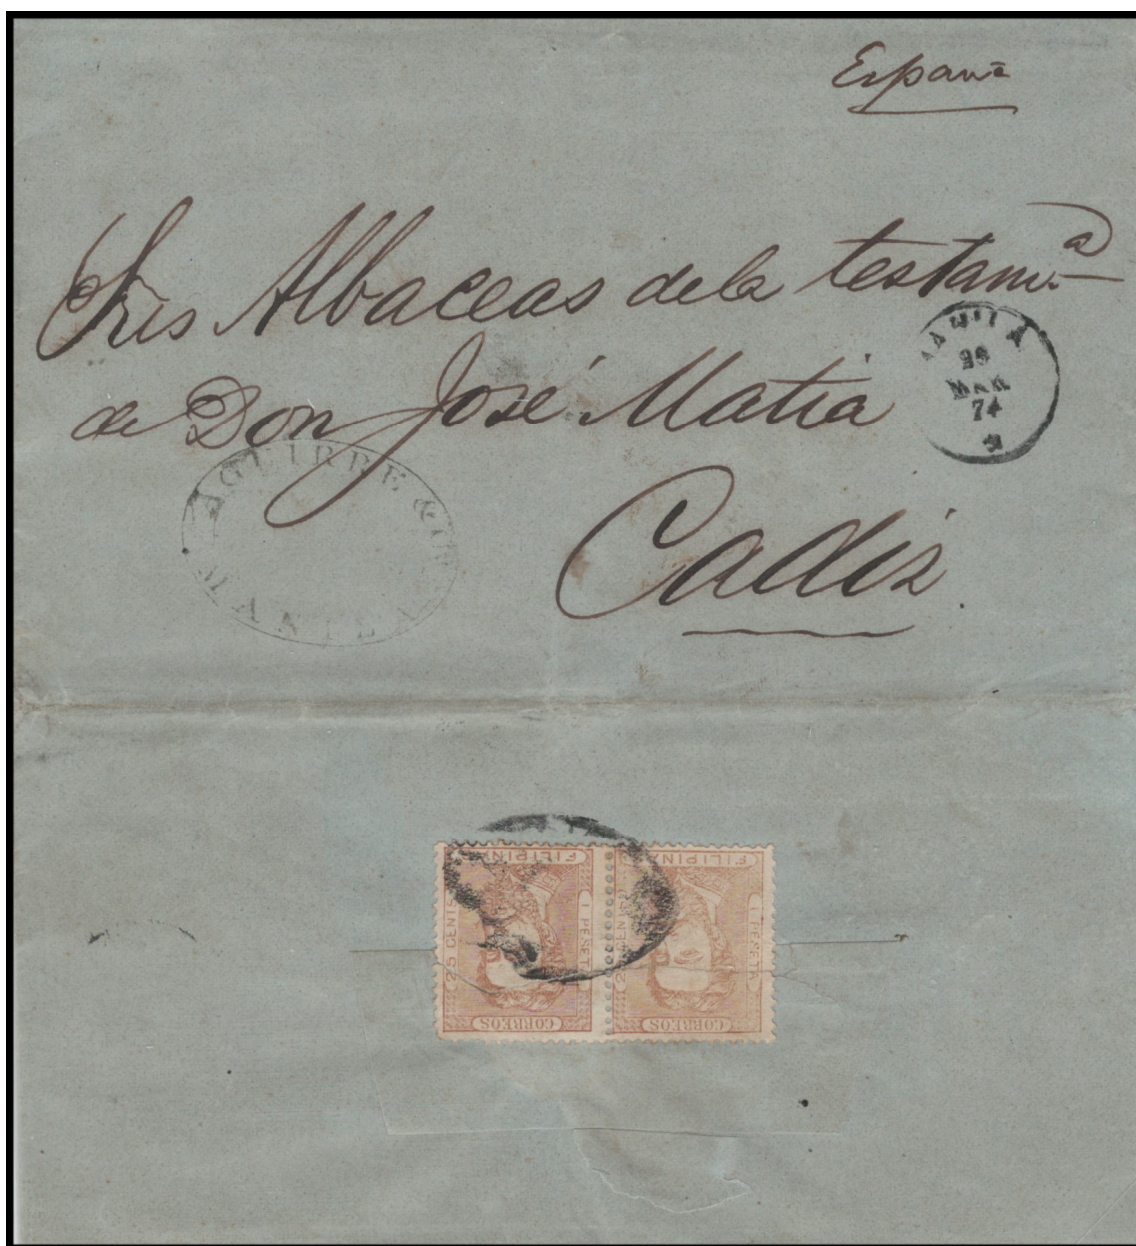 España
Sres Albaceas dela testam.ª
de Don José Matia
Cadiz
MANILA
MAR
74
AGUIRRE & Cº
MANILA
FILIPINAS
25 CENTS
1 PESETA
CORREOS
FILIPINAS
25 CENTS
1 PESETA
CORREOS